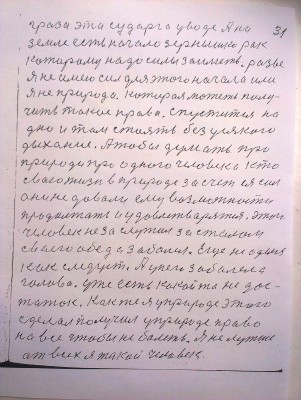 31
праза эта сударга уводе А на
земле есть начало зернышко рак
которому надо силы заплеть. разве
я не имею сил для этого начала или
я не природа. Которая может полу-
чить такое права. Спустится на
дно и там стоять без уляког
дыхание. А тобы думать про
природи про одного человека кто
свою жизь в природе за счет ея сил
они не довали ему возможности
продолжать и удовлетварятся. Этот
человек не заслужил за сталом
своего обеда заболел. Еще не оделя
как следует. А у него заболела
голова. уже есть какой та не дос-
таток. Как же я у природе этого
сделал получил у природе право
на все чтобы не балеть. Я не лутше
от всех я такой человек.